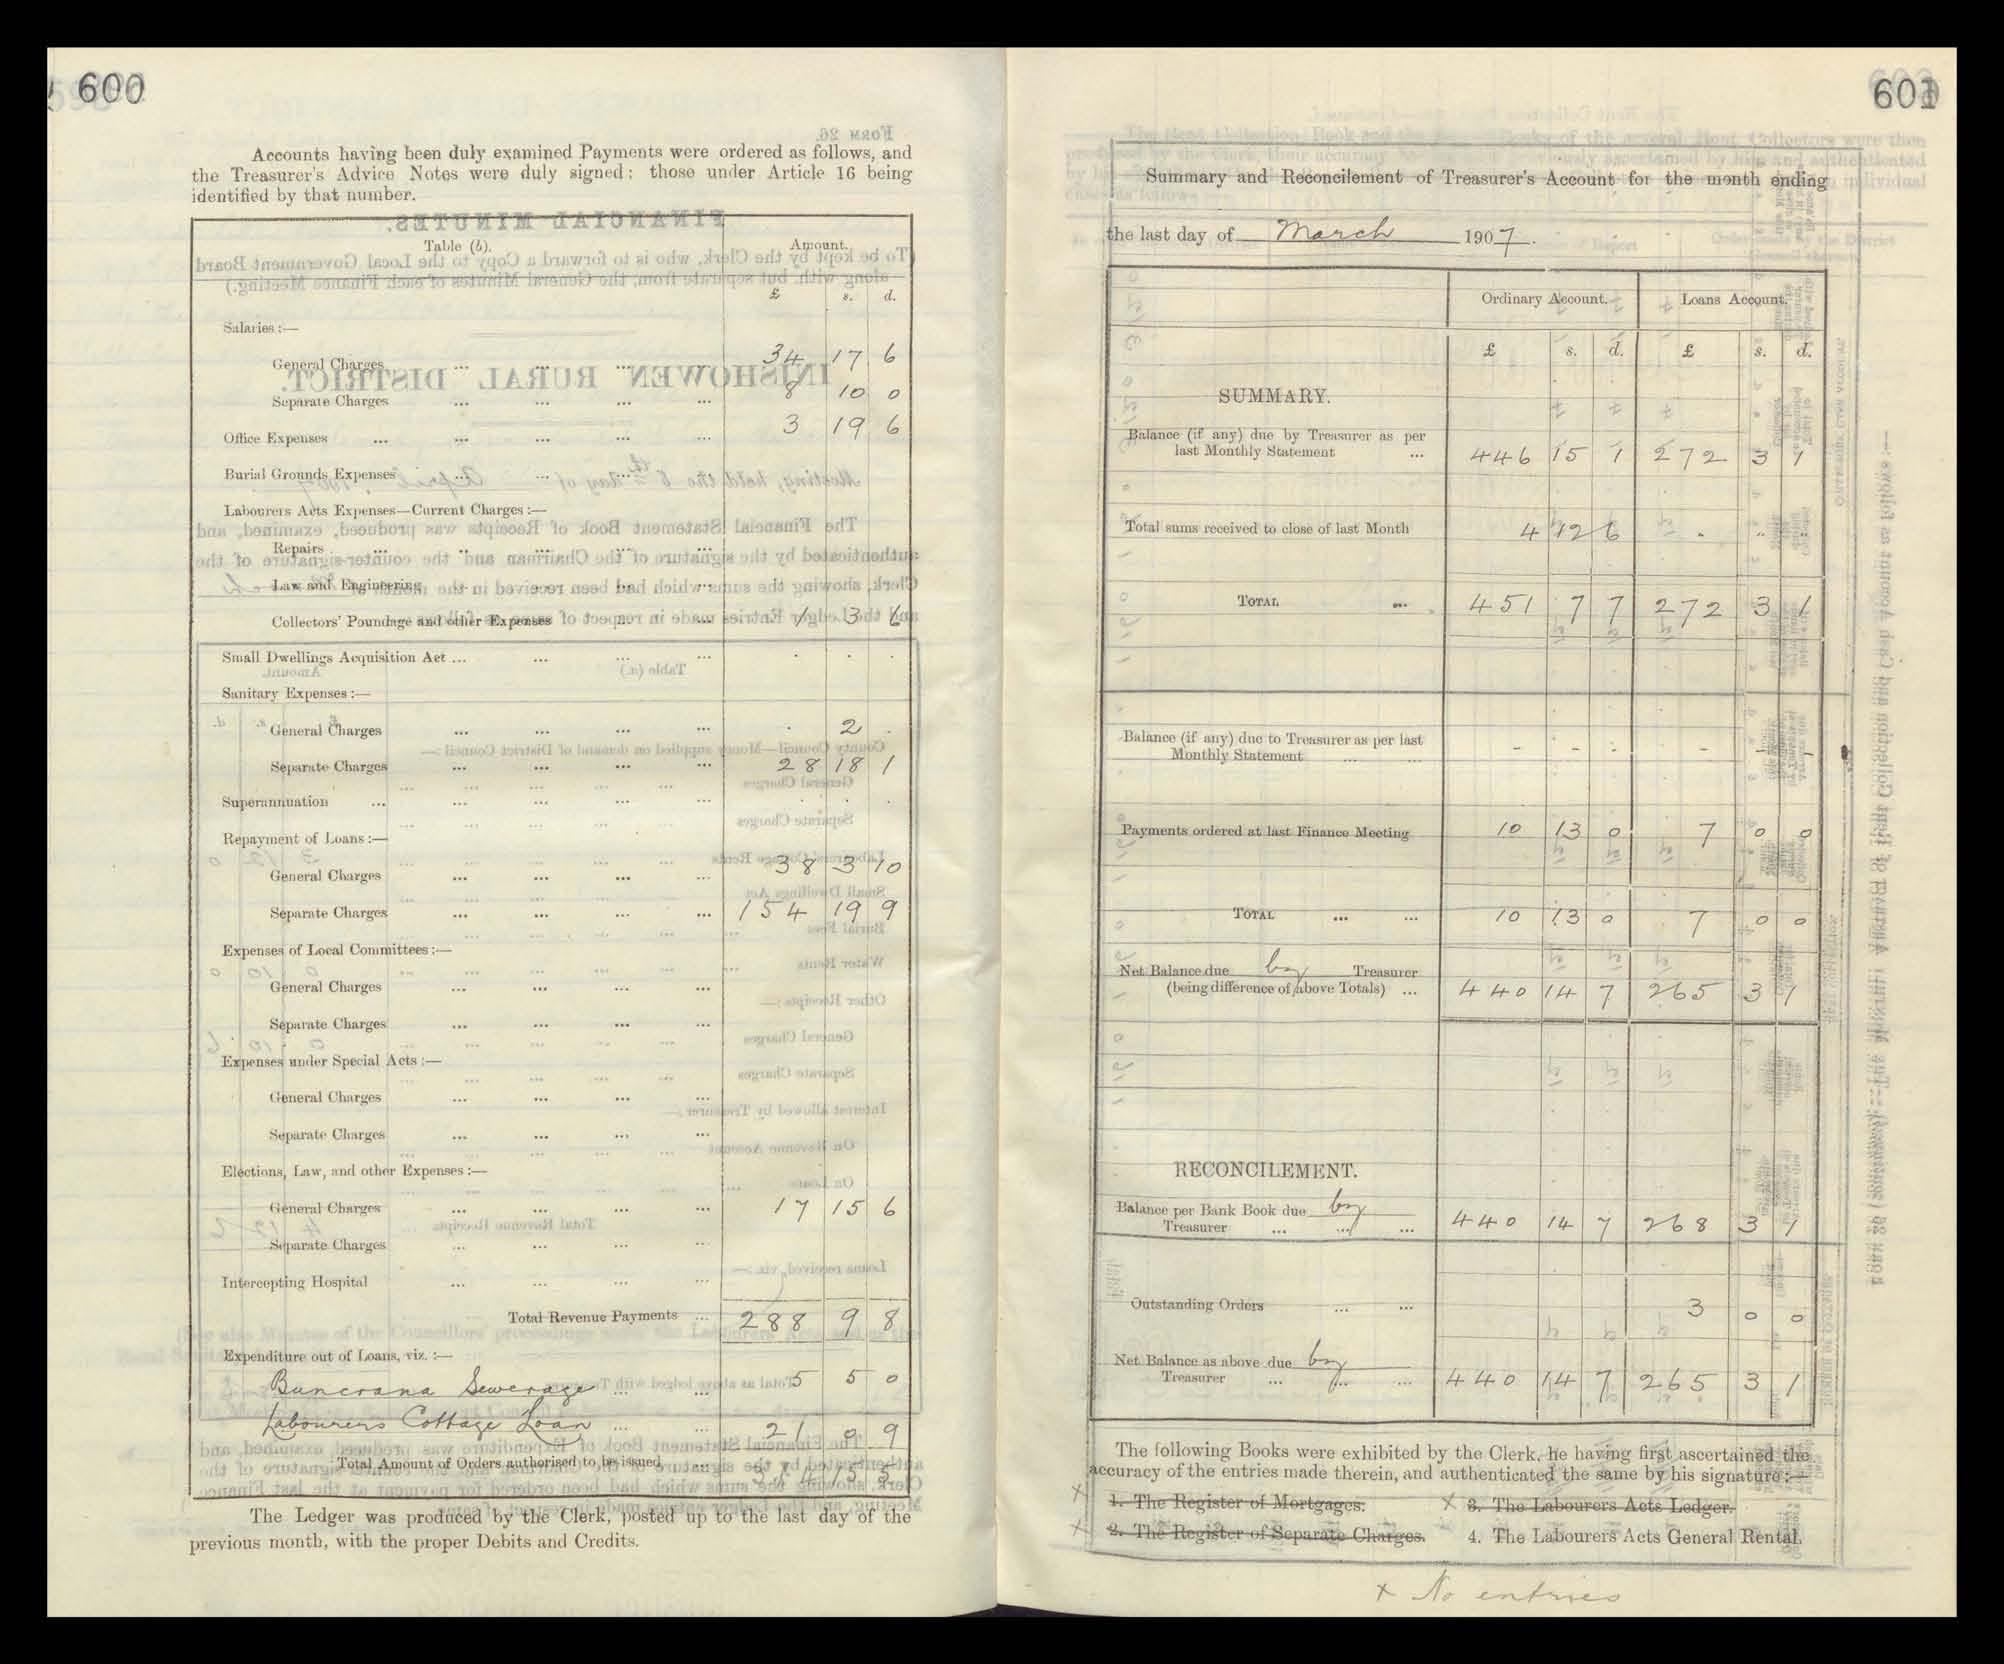 600
Accounts having been duly examined Payments were ordered as follows, and
the Treasurer's Advice Notes were duly signed; those under Article 16 being
identified by that number.
Table (b). Amount.
£ s. d.
Salaries :—
General Charges ... ... ... ... 34 17 6
Separate Charges ... ... ... ... 8 10 0
Office Expenses ... ... ... ... ... 3 19 6
Burial Grounds Expenses ... ... ...
Labourers Acts Expenses—Current Charges :—
Repairs ... ... ... ... ...
Law and Engineering ... ...
Collectors' Poundage and other Expenses ... ... 1 3 6
Small Dwellings Acquisition Act ... ... ... ... . . .
Sanitary Expenses :—
General Charges ... ... ... ... . 2 .
Separate Charges ... ... ... ... 28 18 1
Superannuation ... ... ... ... ... . . .
Repayment of Loans :—
General Charges ... ... ... ... 38 3 10
Separate Charges ... ... ... ... 154 19 9
Expenses of Local Committees :—
General Charges ... ... ... ...
Separate Charges ... ... ... ...
Expenses under Special Acts :—
General Charges ... ... ... ...
Separate Charges ... ... ... ...
Elections, Law, and other Expenses :—
General Charges ... ... ... ... 17 15 6
Separate Charges ... ... ... ...
Intercepting Hospital ... ... ... ...
Total Revenue Payments ... 288 9 8
Expenditure out of Loans, viz. :—
Buncrana Sewerage ... ... 5 5 0
Labourers Cottage Loan ... ... 21 0 9
Total Amount of Orders authorised to be issued ...
The Ledger was produced by the Clerk, posted up to the last day of the
previous month, with the proper Debits and Credits.
601
Summary and Reconcilement of Treasurer's Account for the month ending
the last day of March 1907.
Ordinary Account. Loans Account.
£ s. d. £ s. d.
SUMMARY.
Balance (if any) due by Treasurer as per
last Monthly Statement ... 446 15 1 272 3 1
Total sums received to close of last Month 4 12 6 . . .
TOTAL ... 451 7 7 272 3 1
Balance (if any) due to Treasurer as per last
Monthly Statement ... ... - - - - - -
Payments ordered at last Finance Meeting 10 13 0 7 0 0
TOTAL ... ... 10 13 0 7 0 0
Net Balance due by Treasurer
(being difference of above Totals) ... 440 14 7 265 3 1
RECONCILEMENT.
Balance per Bank Book due by
Treasurer ... ... ... 440 14 7 268 3 1
Outstanding Orders ... ... 3 0 0
Net Balance as above due by
Treasurer ... ... ... 440 14 7 265 3 1
The following Books were exhibited by the Clerk, he having first ascertained the
accuracy of the entries made therein, and authenticated the same by his signature :—
x 1. The Register of Mortgages. x 3. The Labourers Acts Ledger.
x 2. The Register of Separate Charges. 4. The Labourers Acts General Rental.
x No entries